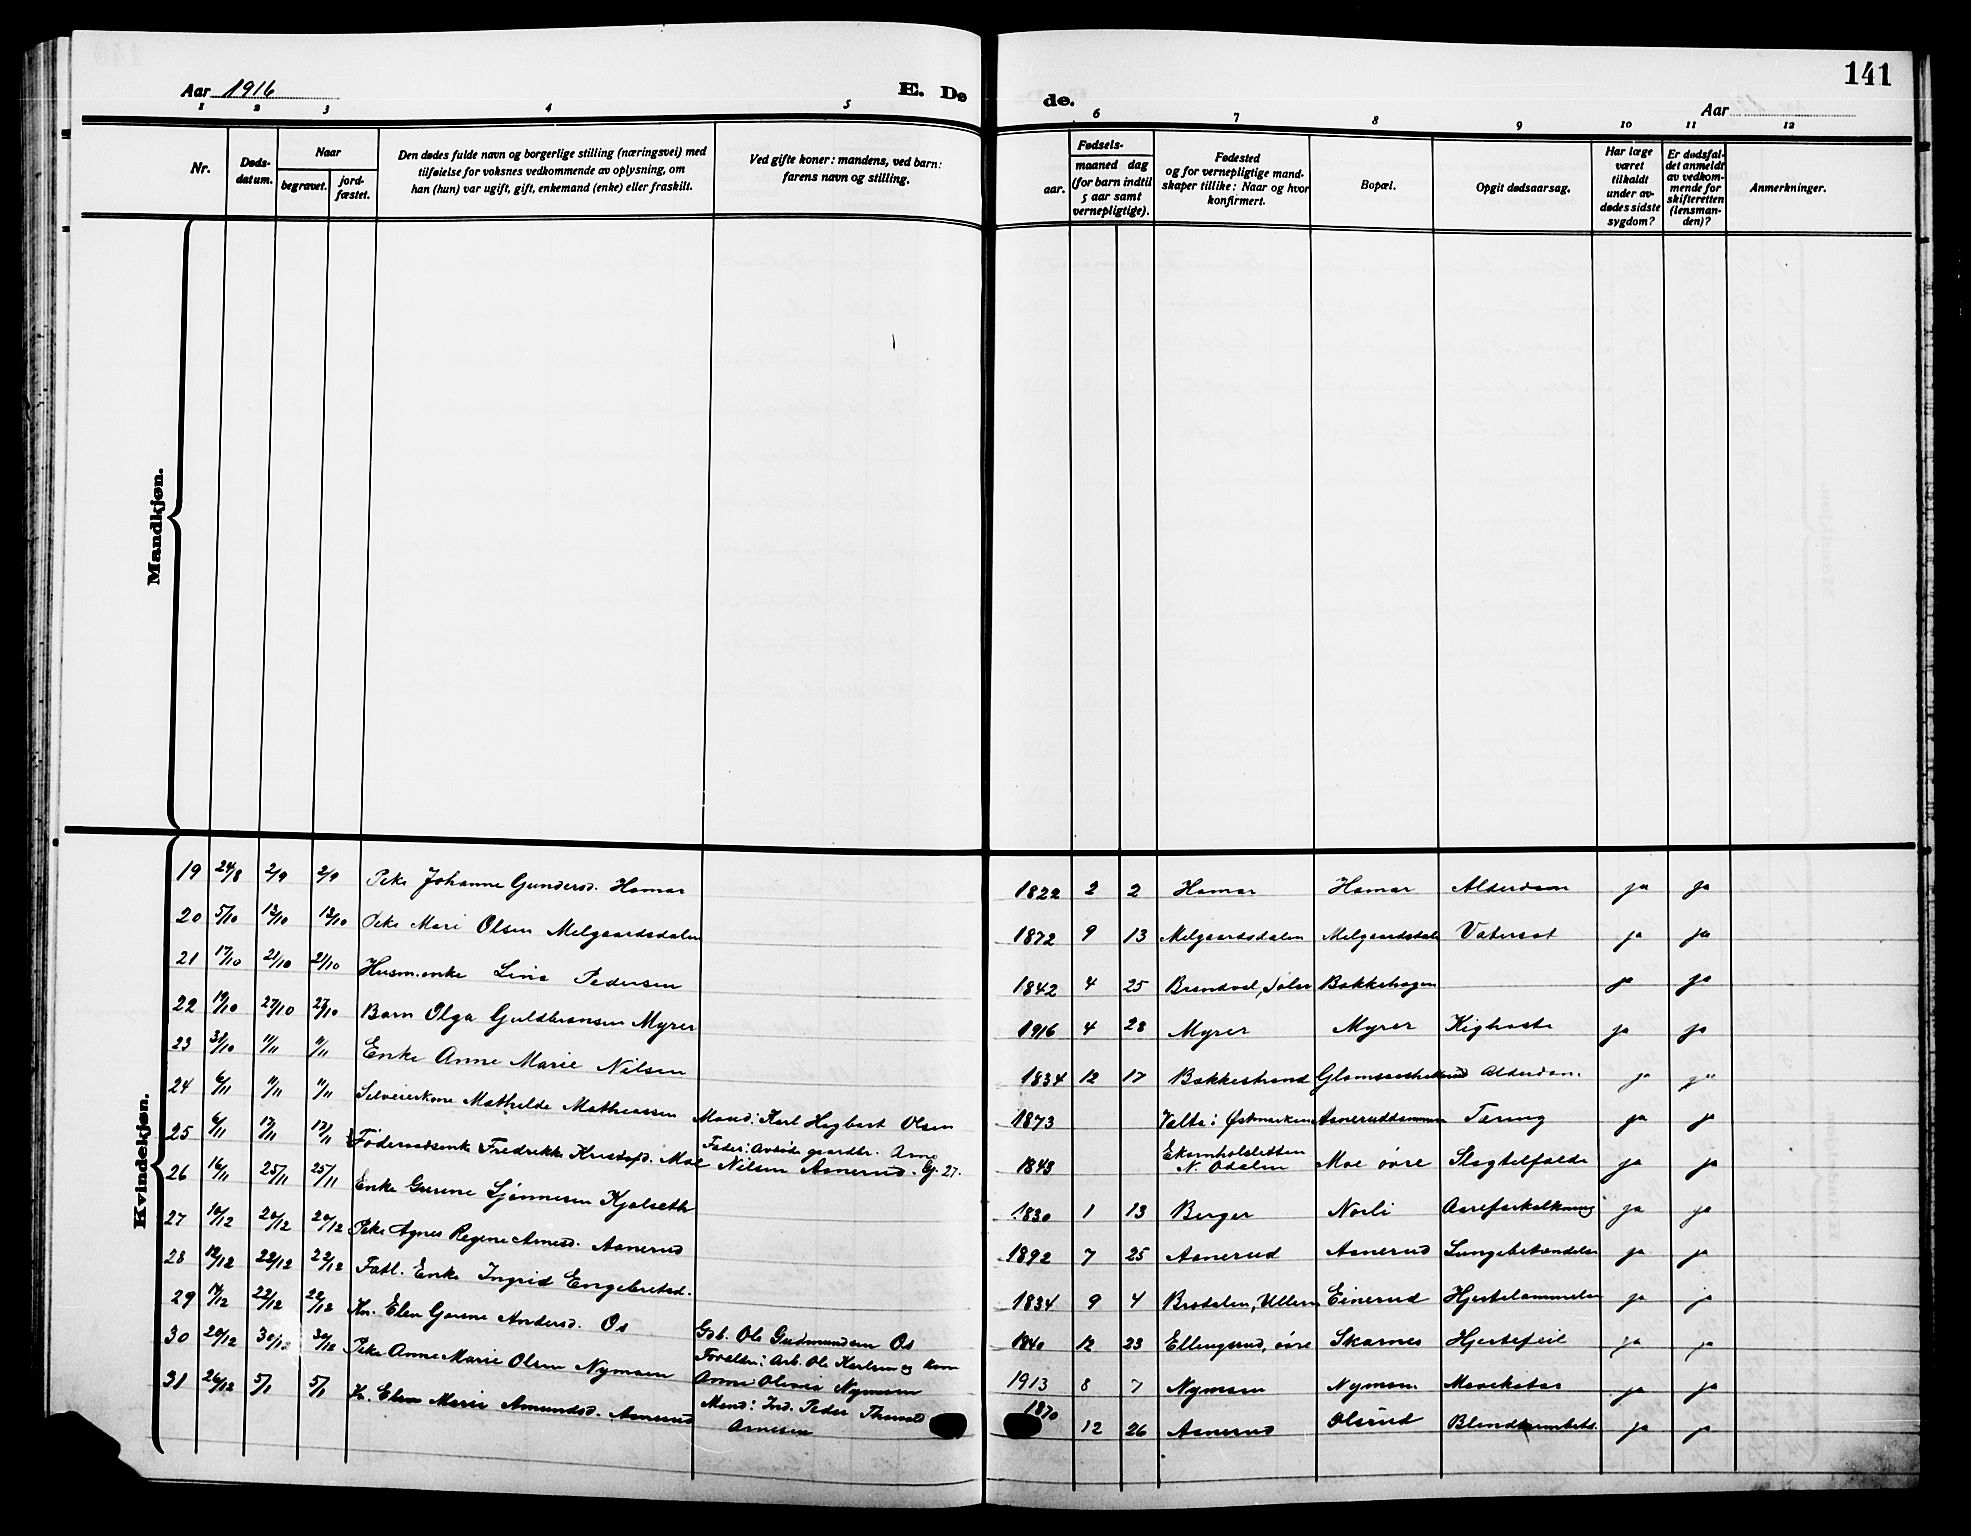 141
Aar 1916
E. Dø
de.
Aar
1 2 3 4 5
6 7 8 9 10 11 12
Nr.
Døds-
datum.
Naar
begravet.
jord-
fæstet.
Den dødes fulde navn og borgerlige stilling (næringsvei) med
tilføielse for voksnes vedkommende av oplysning, om
han (hun) var ugift, gift, enkemand (enke) eller fraskilt.
Ved gifte koner: mandens, ved barn:
farens navn og stilling.
aar.
Fødsels-
maaned dag
(for barn indtil
5 aar samt
vernepligtige).
Fødested
og for vernepligtige mand-
skaper tillike: Naar og hvor
konfirmert.
Bopæl.
Opgit dødsaarsag.
Har læge
været
tilkaldt
under av-
dødes sidste
sygdom?
Er dødsfal-
det anmeldt
av vedkom-
mende for
skifteretten
(lensman-
den)?
Anmerkninger.
Mandkjøn.
Kvindekjøn.
19 24/8 2/9 2/9 Pike Johanne Gundersd. Homar 1822 2 2 Homar Homar Alderdom ja ja
20 5/10 12/10 12/10 Pike Mari Olsen Melgaardsdalen 1872 9 13 Melgaardsdalen Melgaardsdale Vatersot ja ja
21 17/10 21/10 21/10 Husm.enke Line Pedersen 1842 4 25 Brandvol, Solør Bakkehagen ja ja
22 19/10 27/10 27/10 Barn Olga Guldbransen Myrer 1916 4 28 Myrer Myrer Kighoste ja ja
23 31/10 11/11 11/11 Enke Anne Marie Nilsen 1834 12 17 Bakkestrand Alderdom ja ja
24 6/11 11/11 11/11 Selveierkone Mathilde Mathiassen Mand: Karl Hagbart Olsen 1873 Valta i Østmarken Asneruddammen Tæring ja ja
25 6/11 Føderaadsenke Fredrikke Kristofd. Moe Fader: Avdøde gaardbr. Arne
Nilsen Asnerud. Cf. 27. 1843
N. Odalen Moe øvre Slagtilfælde ja ja
26 16/11 25/11 25/11 Enke Gurine Sjønnesen Kjolseth 1830 1 13 Berger Norli Aareforkalkning ja ja
27 10/12 20/12 20/12 Pike Agnes Regine Arnesd. Asnerud 1892 7 25 Asnerud Asnerud Lungebetændelse ja ja
28 12/12 22/12 22/12 Fatl. Enke Ingrid Engebretsd. 1834 9 4 Brodalen, Ullern Einerud Hjertelammelse ja ja
29 17/12 22/12 22/12 Kn. Elen Gurine Andersd. Os Gdb. Ole Gudmundsen Os 1840 12 23 Ellingsrud, øvre Skarnes Hjertefeil ja ja
30 20/12 30/12 30/12 Pike Anne Marie Olsen Nymoen Forældre: Arb. Ole Karlsen og kone
Anne Olivia Nymoen 1913 8 7 Nymoen Nymoen Mavekatar ja ja
31 26/12 5/1 5/1 K. Elen Marie Amundsd. Asnerud Mand: Ind. Peder Thorvald
Arnesen 1870 12 26 Asnerud Olsrud ja ja